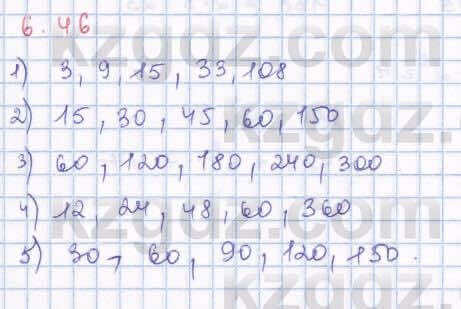 6.46
1) 3, 9, 15, 33, 108
2) 15, 30, 45, 60, 150
3) 60, 120, 180, 240, 300
4) 12, 24, 48, 60, 360
5) 30, 60, 90, 120, 150.
kzgdz.com